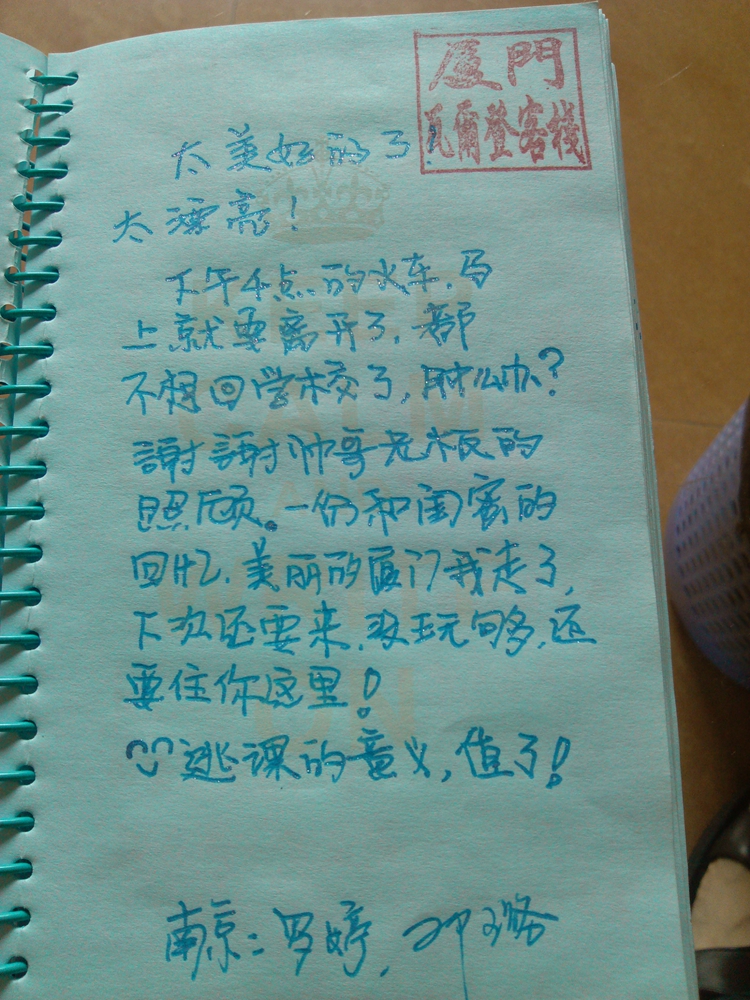 厦門
瓦爾登客棧
太美好的了!
太漂亮!
下午4点的火车,马
上就要离开了,都
不想回学校了,肿么办?
謝謝帅哥老板的
照顾。一份和闺蜜的
回忆,美丽的厦门我走了,
下次还要来,没玩够,还
要住你这里!
逃课的意义,值了!
南京:罗婷,
KEEP
CALM
AND
ON